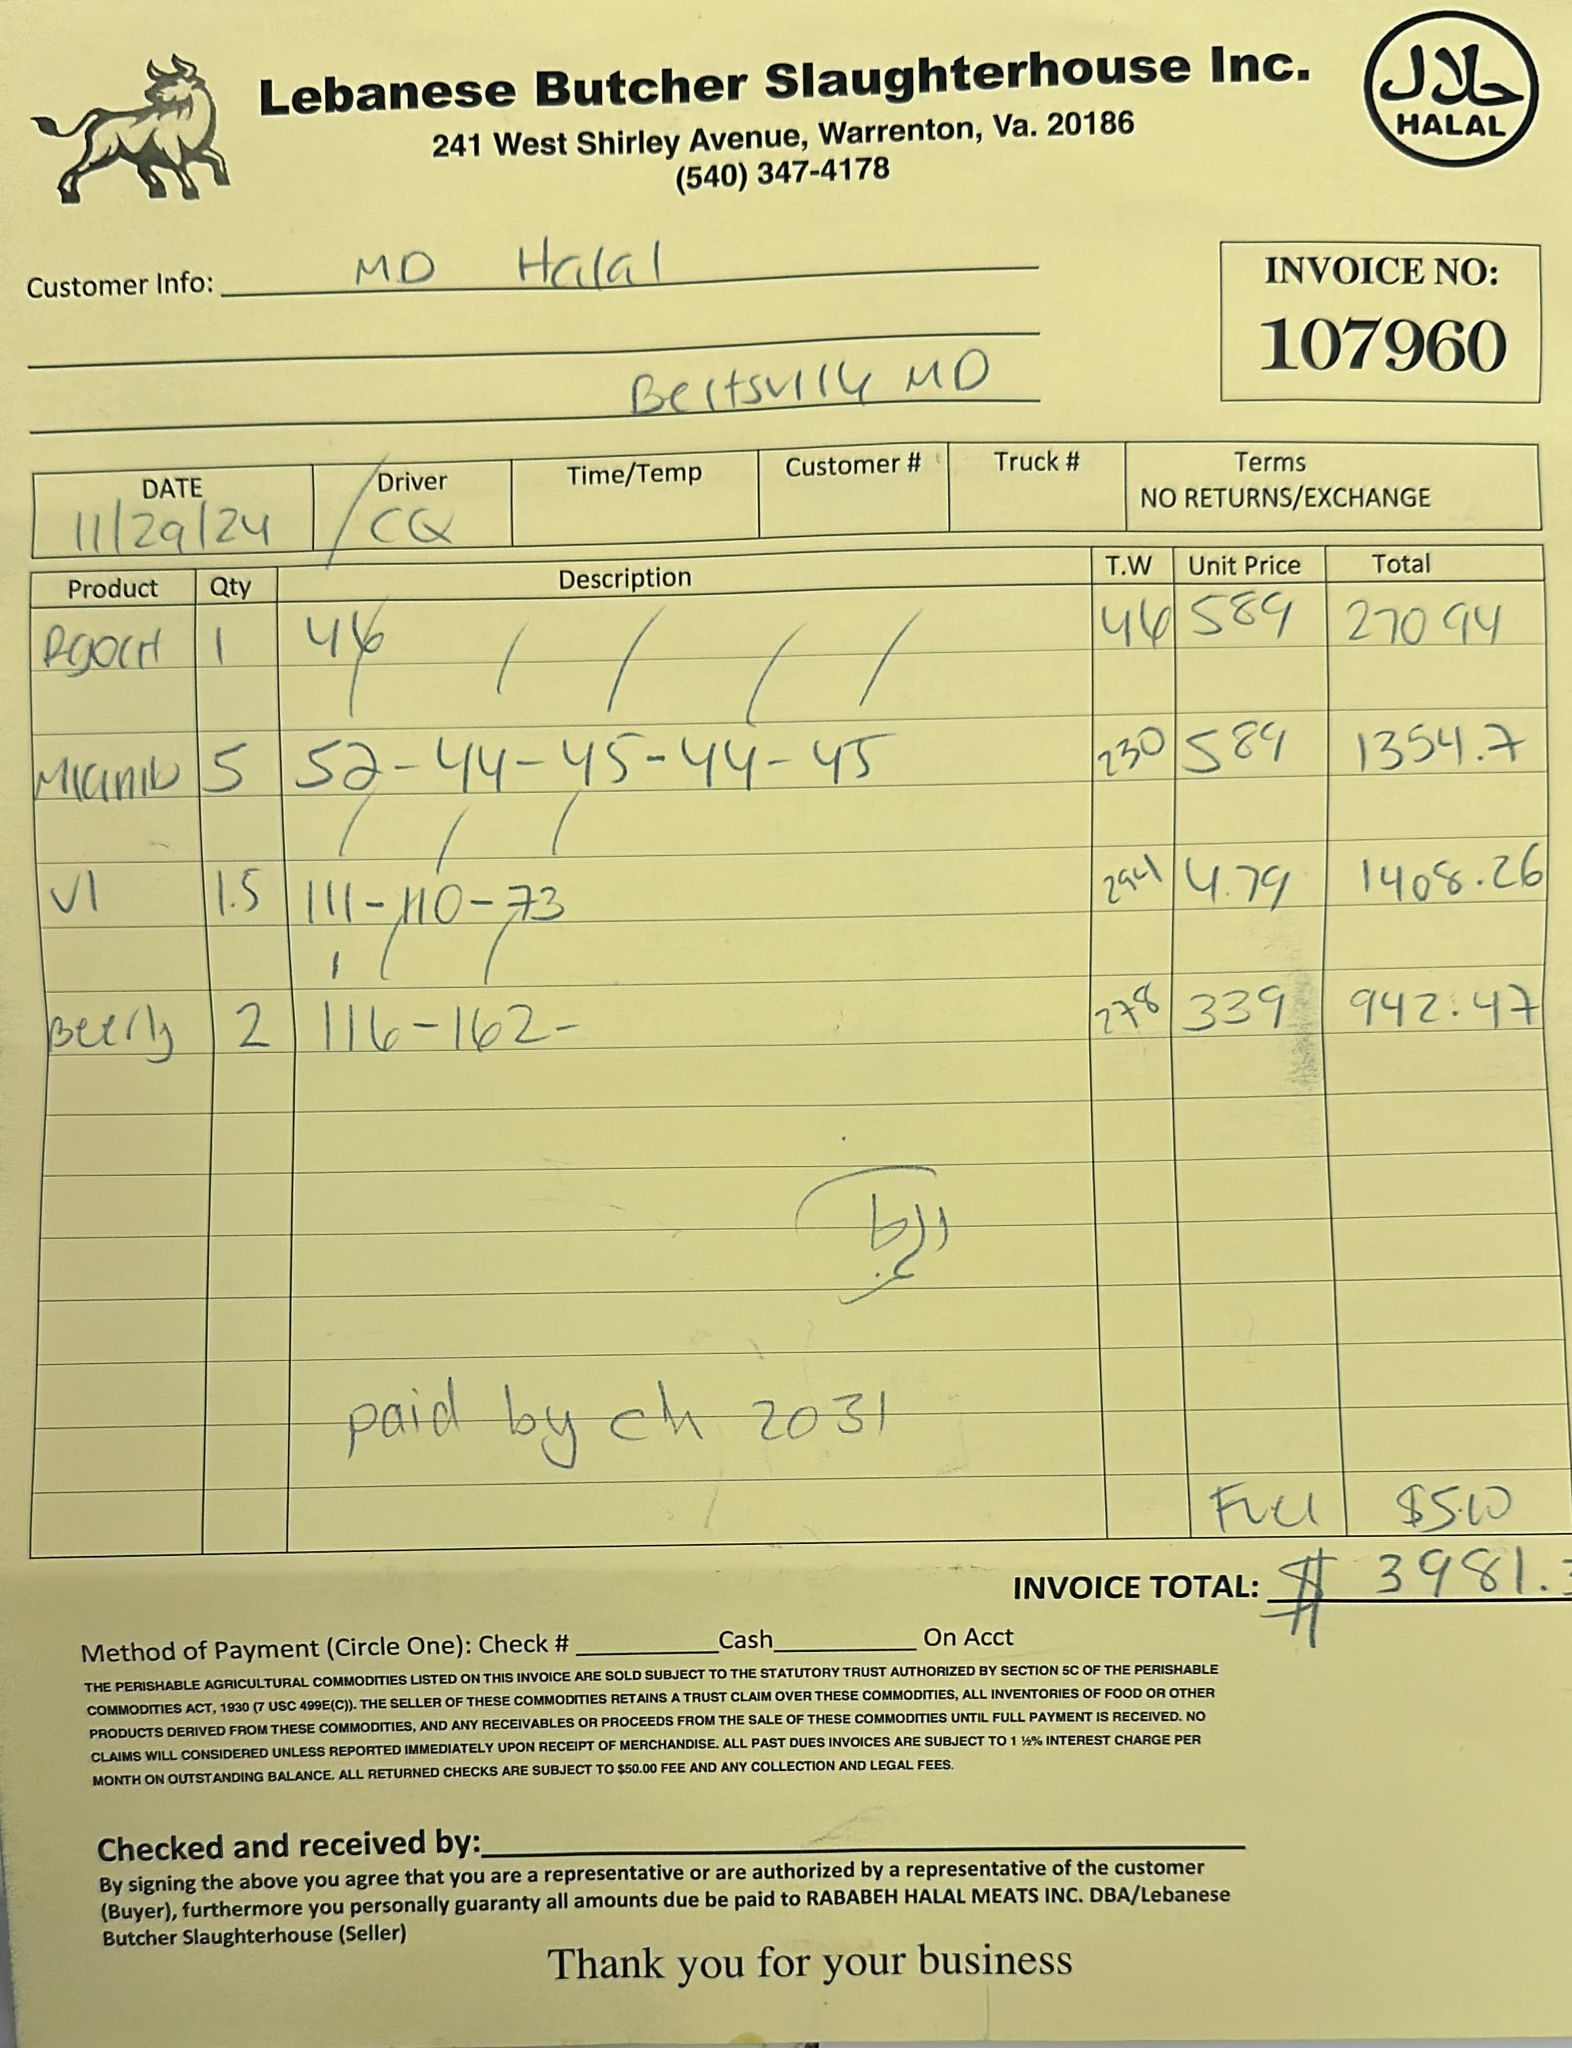 Lebanese Butcher Slaughterhouse Inc.
241 West Shirley Avenue, Warrenton, Va. 20186
(540) 347-4178
حلال
HALAL
Customer Info: MD Halal
INVOICE NO:
107960
MD
DATE Driver Time/Temp Customer # Truck # Terms
NO RETURNS/EXCHANGE
11/29/24 CQ
Product Qty Description T.W Unit Price Total
1 46 46 589 270 94
5 52-44-45-44-45 230 589 1354.7
VI 1.5 111-110-73 294 4.79 1408.26
2 116-162- 278 339 942.47
paid by ch 2031
$5.10
INVOICE TOTAL: $ 3981.3
Method of Payment (Circle One): Check # Cash On Acct
THE PERISHABLE AGRICULTURAL COMMODITIES LISTED ON THIS INVOICE ARE SOLD SUBJECT TO THE STATUTORY TRUST AUTHORIZED BY SECTION 5C OF THE PERISHABLE
COMMODITIES ACT, 1930 (7 USC 499E(C)). THE SELLER OF THESE COMMODITIES RETAINS A TRUST CLAIM OVER THESE COMMODITIES, ALL INVENTORIES OF FOOD OR OTHER
PRODUCTS DERIVED FROM THESE COMMODITIES, AND ANY RECEIVABLES OR PROCEEDS FROM THE SALE OF THESE COMMODITIES UNTIL FULL PAYMENT IS RECEIVED. NO
CLAIMS WILL CONSIDERED UNLESS REPORTED IMMEDIATELY UPON RECEIPT OF MERCHANDISE. ALL PAST DUES INVOICES ARE SUBJECT TO 1 ½% INTEREST CHARGE PER
MONTH ON OUTSTANDING BALANCE. ALL RETURNED CHECKS ARE SUBJECT TO $50.00 FEE AND ANY COLLECTION AND LEGAL FEES.
Checked and received by:
By signing the above you agree that you are a representative or are authorized by a representative of the customer
(Buyer), furthermore you personally guaranty all amounts due be paid to RABABEH HALAL MEATS INC. DBA/Lebanese
Butcher Slaughterhouse (Seller)
Thank you for your business